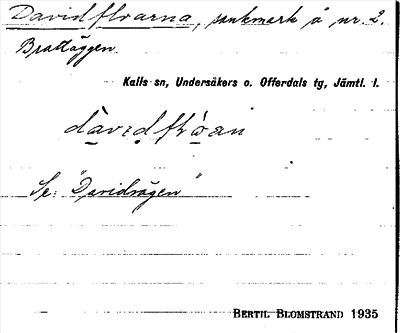 Davidfloarna, sankmark å nr. 2.
Brattåggen.
Kalls sn, Undersåkers o. Offerdals tg, Jämtl. l.
dàvidflòan
Se: "Davidsågen"
BERTIL BLOMSTRAND 1935